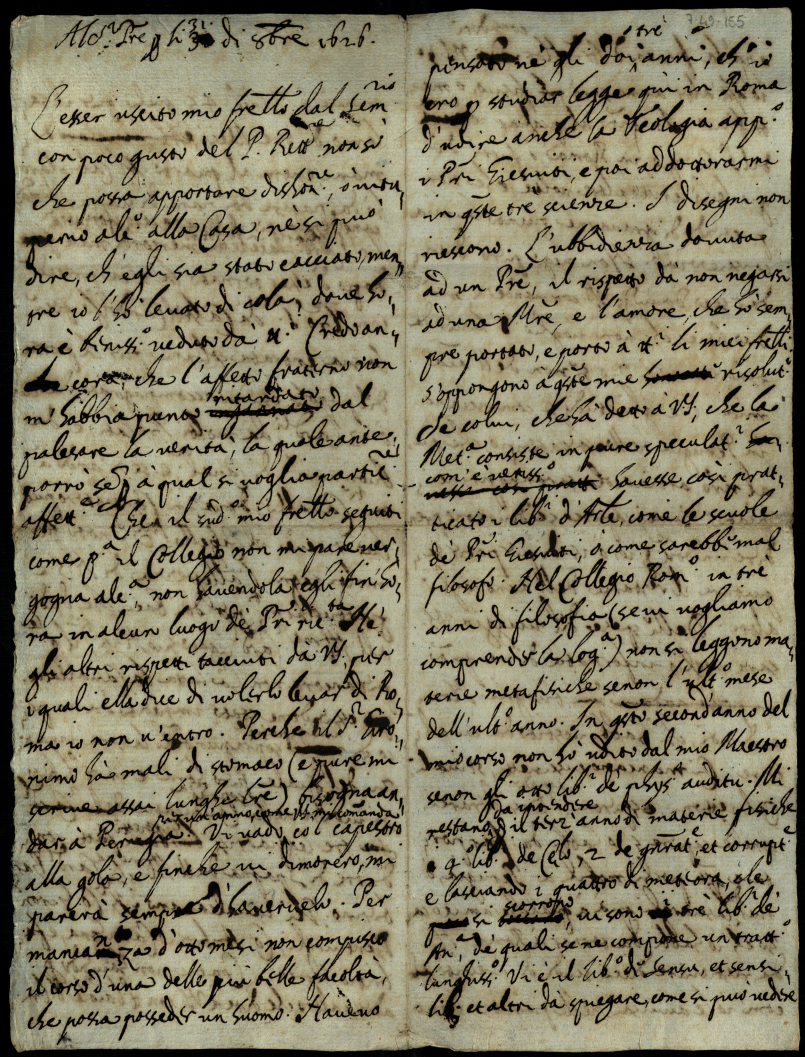 Al Sr. Pre p li 31 di 8bre 1626.
L'esser uscito mio frello dal Semrio
con poco gusto del P. Rettre non sò
che possa apportare dishonre, ò uitu,
perio alc.o alla Casa, nè si può
dire, ch'egli sia stato cacciato, men,
tre io l'hò leuato di colà, doue ho,
ra è beniss.o ueduto dà tti. Credo an,
cora, che l'affetto fraterno non
m'habbia punto ritardato dal
palesare la uerità, la quale ante,
porrò sep. à qual si uoglia particre
affett.e Che il sud.o mio frello seguiti
come p.a il Collegio non mi pare uer,
gogna alc.a, non hauendola egli fin ho,
ra in alcun luogo de' Pri riceta. Nè
gli altri rispetti tacciuti da VS. per
i quali ella dice di uolerlo leuar di Ro,
ma io non u'entro. Perche il Sr. Giro,
nimo hà mali di stomaco (e pure mi
scriue assai lunghe lre) bisogna an,
dar à Perugia per un anno, come VS. mi comanda
Vi uado col capestro
alla gola, e finche ui dimorerò, mi
parerà sempre d'hauerlo. Per
mancanza d'otto mesi non compisco
il corso d'una delle più belle facoltà,
che possa posseder un huomo. Haueuo
749-155
pensato nè gli doi trè anni, ch'io
ero p studiar legge quì in Roma
d'udire anche la Teologia app.o
i Pri Giesuiti, e poi addottorarmi
in qste trè scienze. I disegni non
riescono. L'ubbidienza douuta
ad un Pre, il rispetto dà non negarsi
ad una Mre, e l'amore, che hò sem,
pre portato, e porto à tti li miei frelli
s'oppongono à qste mie risolut.i
Se colui, che hà detto à VS, che la
Met.a consiste in pure speculat.i
com'è ueriss.o hauesse così prat,
ticato i lib.i d'Arle, come le scuole
de' Pri Giesuiti, ò come sarebbe mal
filosofo. Nel Collegio Rom.o in trè
anni di filosofia (se ui uogliamo
comprender la log.a) non si leggono ma,
terie metafisiche senon l'ult.o mese
dell'ult.o anno. In qsto second'anno del
mio corso non hò udito dal mio Maestro
senon gli otto lib.i de phys.o auditu. Mi
restano da intendere il terz'anno di materie fisiche
4.o lib.i de Celo, 2 de gnrat.e et corrupt.e
e lasciando i quattro di meteora, ch'e
si scorrono, ui sono trè lib.i de
An.a, de' quali se ne compone un tratt.o
lunghiss.o Vi è il lib.o di Sensu, et sensi,
li, et altri dà spiegare, come si può uedere